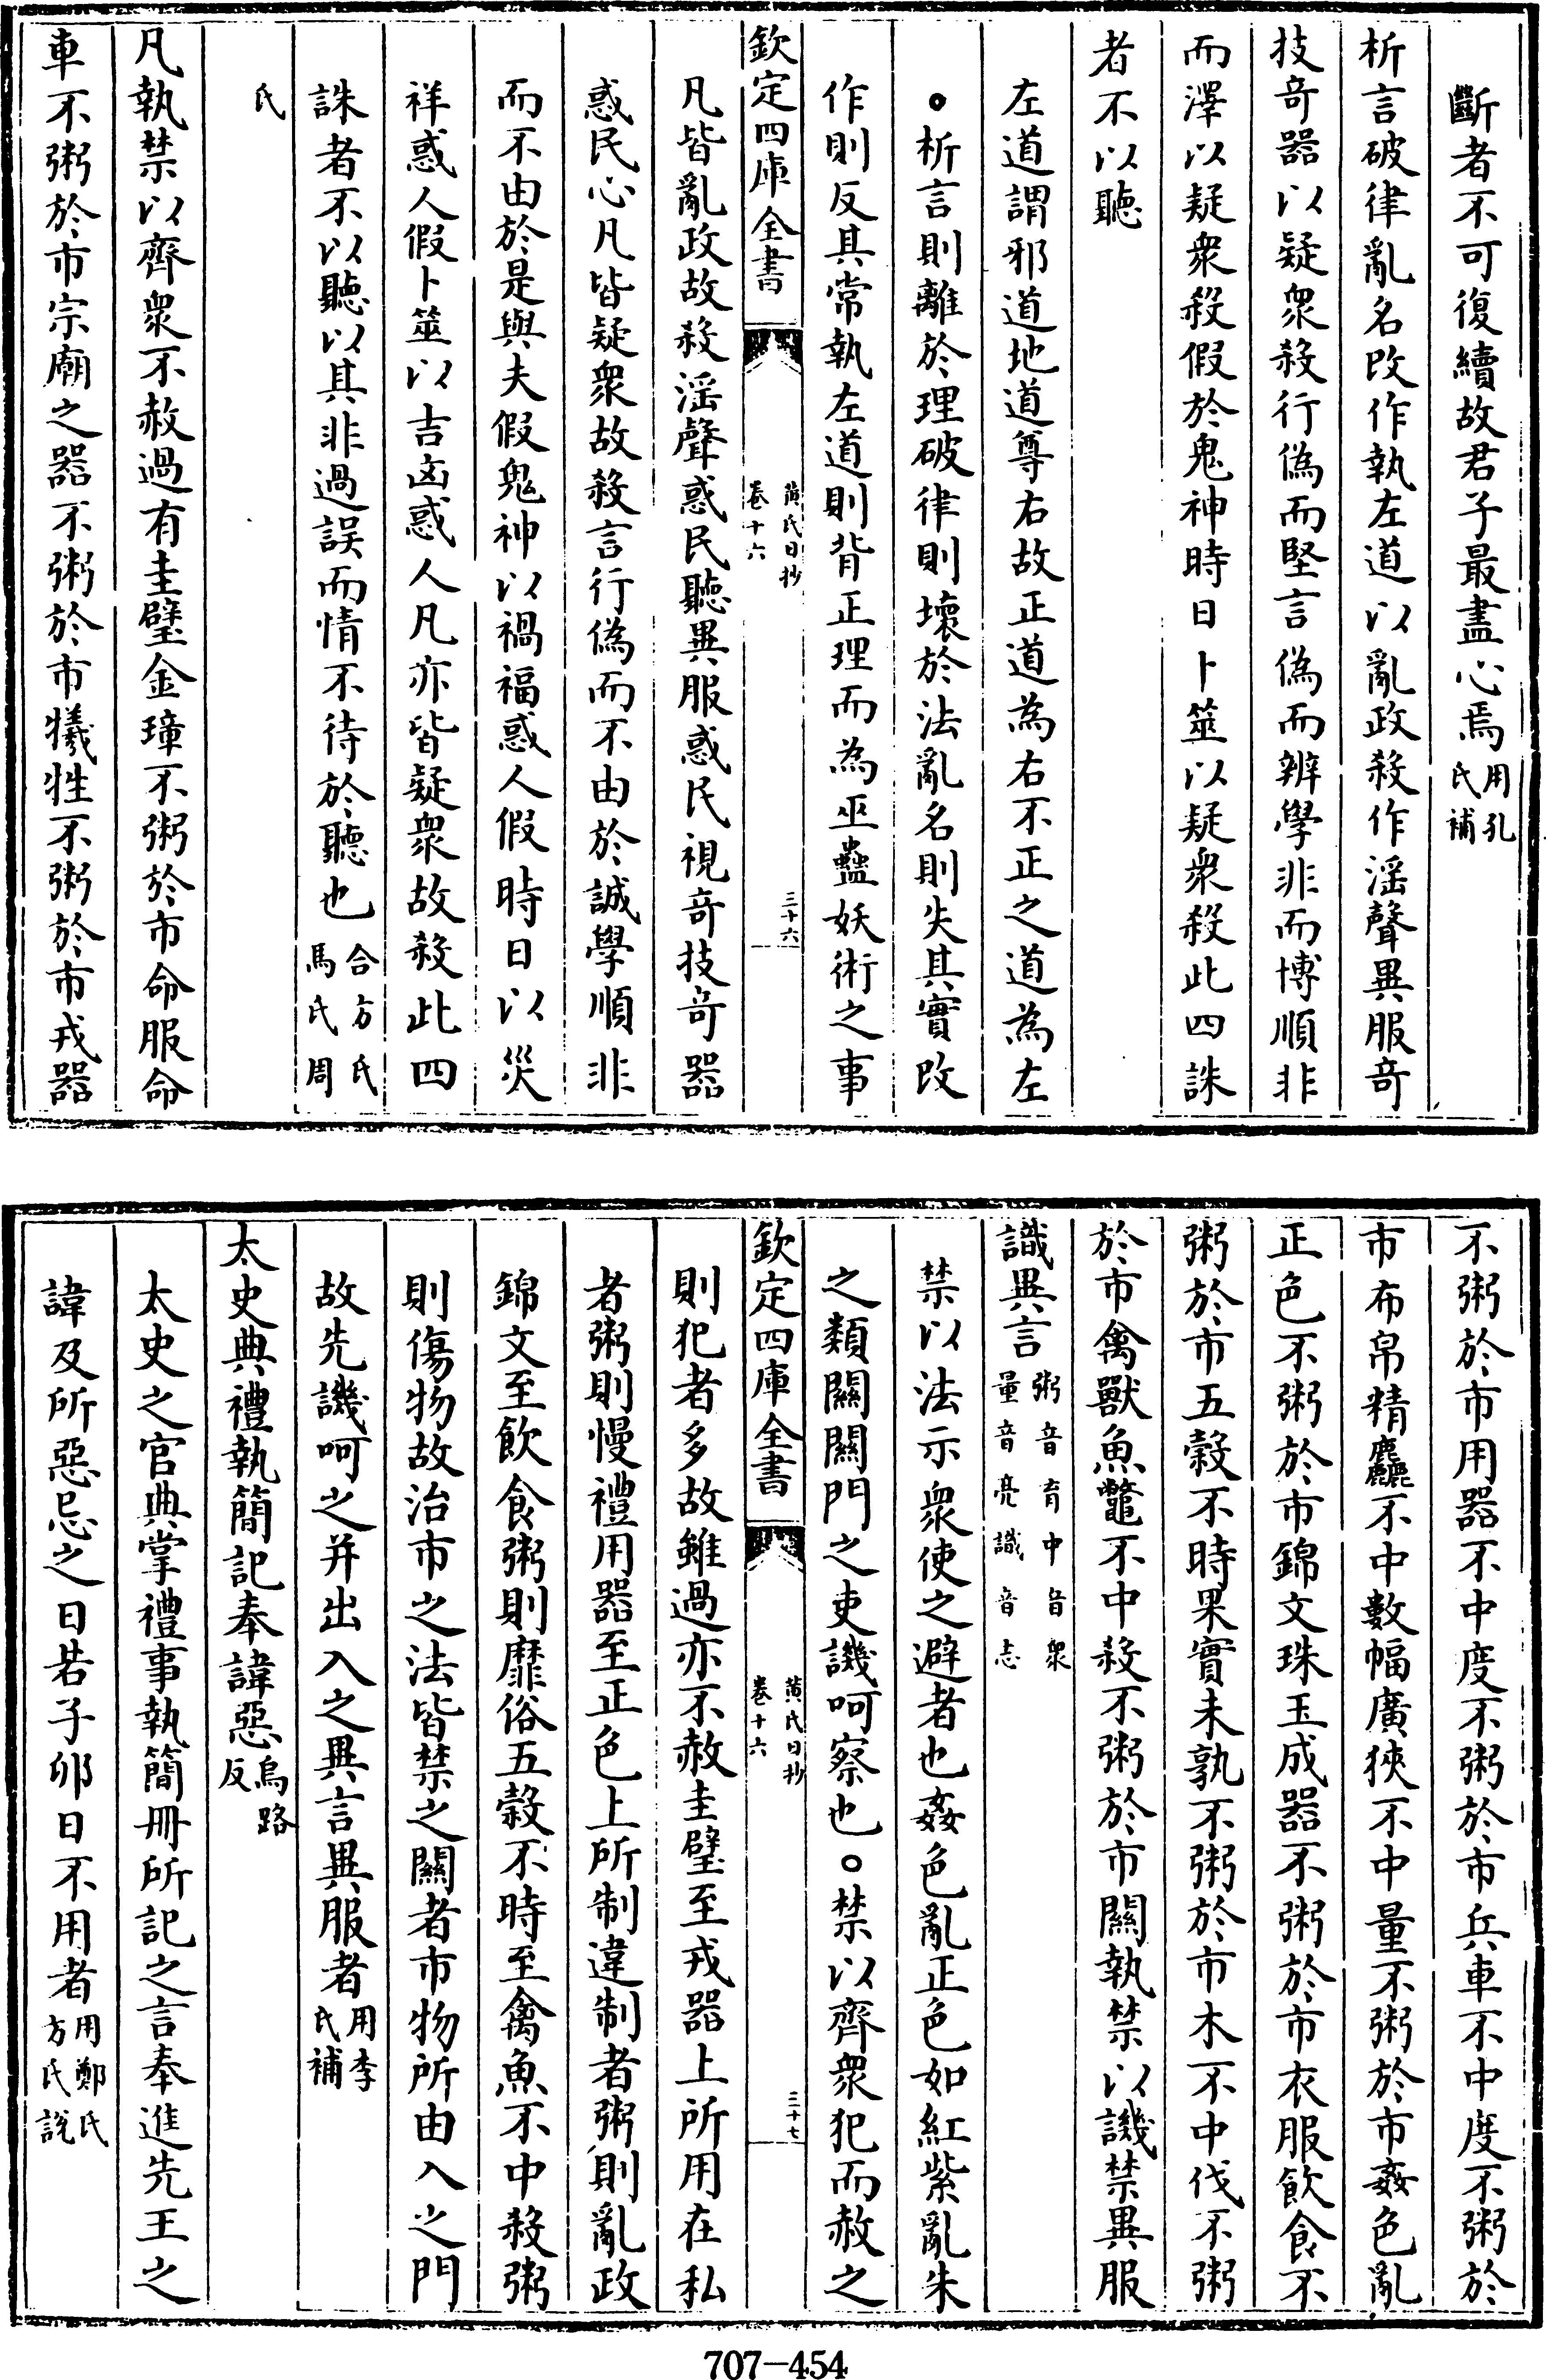 斷者不可復續故君子最盡心焉用孔氏補
析言破律亂名改作執左道以亂政殺作滛聲異服竒
技竒器以疑衆殺行偽而堅言偽而辨學非而博順非
而澤以疑衆殺假於鬼神時日卜筮以疑衆殺此四誅
者不以聽
左道謂邪道地道尊右故正道為右不正之道為左
○析言則離於理破律則壞於法亂名則失其實改
作則反其常執左道則背正理而為巫蠱妖術之事
欽定四庫全書 黄氏日抄卷十六 三十六
凡皆亂政故殺滛聲惑民聽異服惑民視竒技竒器
惑民心凡皆疑衆故殺言行偽而不由於誠學順非
而不由於是與夫假鬼神以禍福惑人假時日以災
祥惑人假卜筮以吉凶惑人凡亦皆疑衆故殺此四
誅者不以聽以其非過誤而情不待於聽也合方氏馬氏周
氏
凡執禁以齊衆不赦過有圭璧金璋不粥於市命服命
車不粥於市宗廟之器不粥於市犧牲不粥於市戎器
不粥於市用器不中度不粥於市兵車不中度不粥於
市布帛精麤不中數幅廣狹不中量不粥於市姦色亂
正色不粥於市錦文珠玉成器不粥於市衣服飲食不
粥於市五穀不時果實未孰不粥於市木不中伐不粥
於市禽獸魚鼈不中殺不粥於市關執禁以譏禁異服
識異言粥音育中音衆量音亮識音志
禁以法示衆使之避者也姦色亂正色如紅紫亂朱
之類關關門之吏譏呵察也○禁以齊衆犯而赦之
欽定四庫全書 黄氏日抄卷十六 三十七
則犯者多故雖過亦不赦圭璧至戎器上所用在私
者粥則慢禮用器至正色上所制違制者粥則亂政
錦文至飲食粥則靡俗五穀不時至禽魚不中殺粥
則傷物故治市之法皆禁之關者市物所由入之門
故先譏呵之并出入之異言異服者用李氏補
太史典禮執簡記奉諱惡烏路反
太史之官典掌禮事執簡冊所記之言奉進先王之
諱及所惡忌之日若子卯日不用者用鄭氏方氏說
707-454